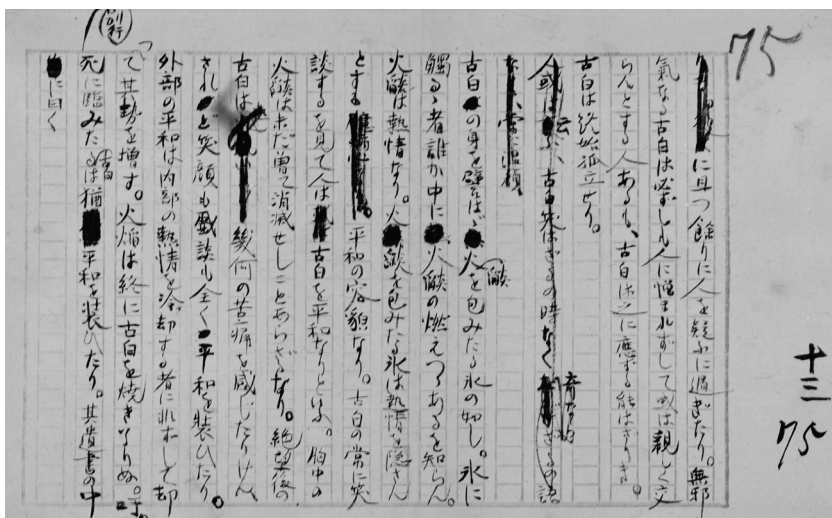 75
十三
75
に且つ餘りに人を疑ふに過ぎたり。無邪
氣なる古白は必ずしも人に惜まれずして或は親しく交
らんとする人あるも、古白は之に應ずる能はざりき。
古白は終始孤立せり。
人或は云ふ、古白笑はざるの時なく奇ならざるの語
なく、常に温顔、
古白の身を譬へば火燄を包みたる氷の如し。氷に
觸るゝ者誰か中に火燄の燃えつゝあるを知らん。
火燄は熱情なり。火燄を包みたる氷は熱情を隱さん
とする平和の容貌なり。古白の常に笑
談するを見て人は古白を平和なりといふ。胸中の
火燄は未だ曽て消滅せしことあらざるなり。絶望後の
古白は幾何の苦痛を感じたりけん、
されど笑顔も戲談も全く平和を裝ひたり。
外部の平和は内部の熱情を冷却する者にれずして却
つて其勢を増す。火焰は終に古白を燒き了りぬ。
別行
死に臨みたる古白は猶平和を裝ひたり。其遺書の中
に曰く